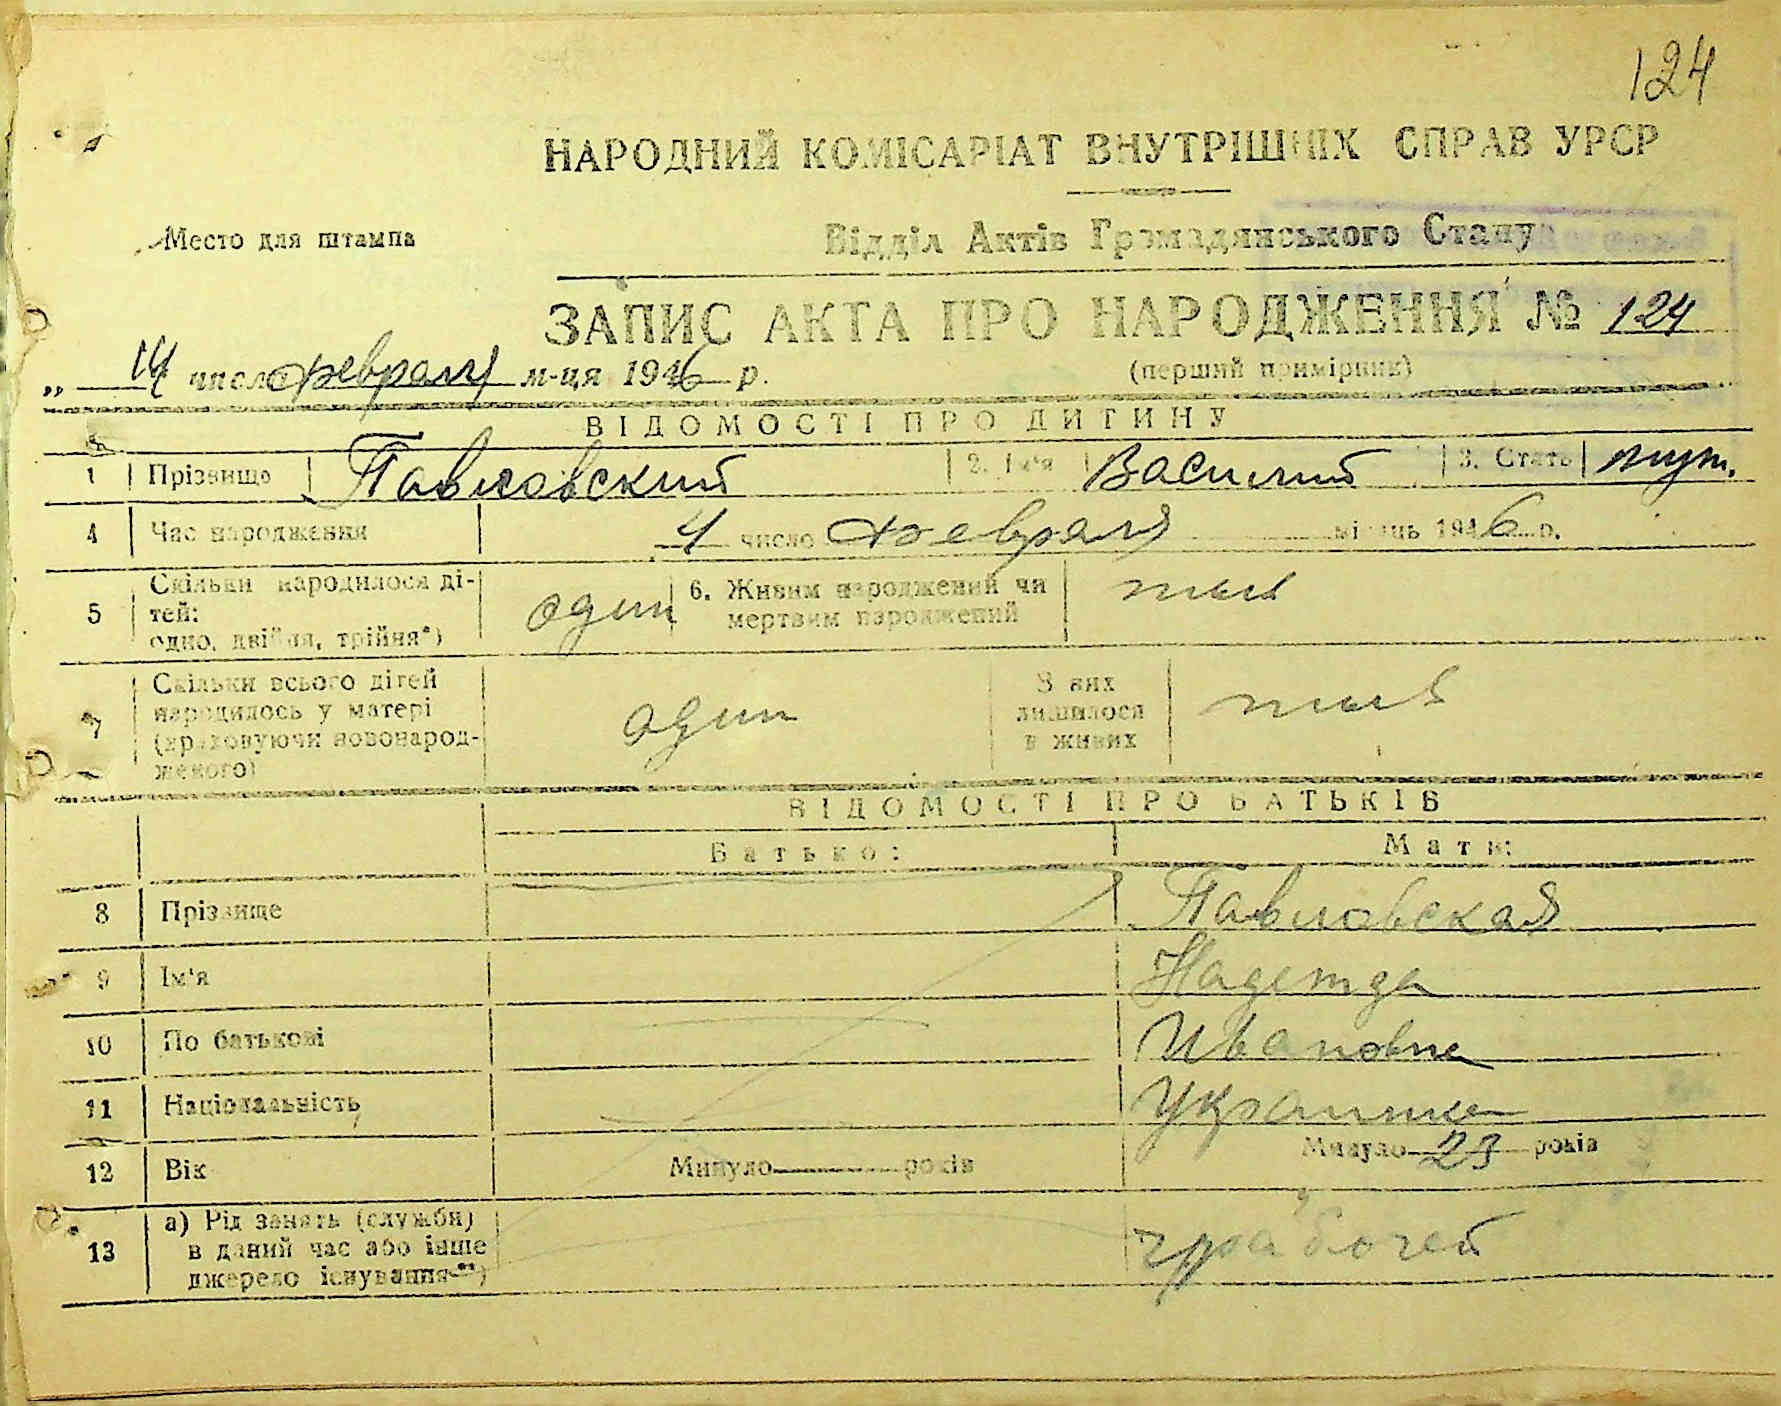 124
НАРОДНИЙ КОМІСАРІАТ ВНУТРІШНІХ СПРАВ УРСР
Место для штампа
Відділ Актів Громадянського Стану
ЗАПИС АКТА ПРО НАРОДЖЕННЯ № 124
„ 14 число февраля м-ця 1946 р.
(перший примірник)
ВІДОМОСТІ ПРО ДИТИНУ
1 Прізвище Павловский 2. Ім'я Василий 3. Стать муж.
4 Час народження 4 число февраля місяць 1946 р.
5 Скільки народилося ді-
тей:
одно, двійня, трійня*)
один
6. Живим народжений чи
мертвим народжений
7 Скільки всього дітей
народилось у матері
(враховуючи новонарод-
женого)
один
З них
лишилося
в живих
ВІДОМОСТІ ПРО БАТЬКІВ
Батько: Мати:
8 Прізвище Павловская
9 Ім'я Надежда
10 По батькові Ивановна
11 Національність Украинка
12 Вік Минуло років Минуло 23 років
13 а) Рід занять (служби)
в даний час або інше
джерело існування**)